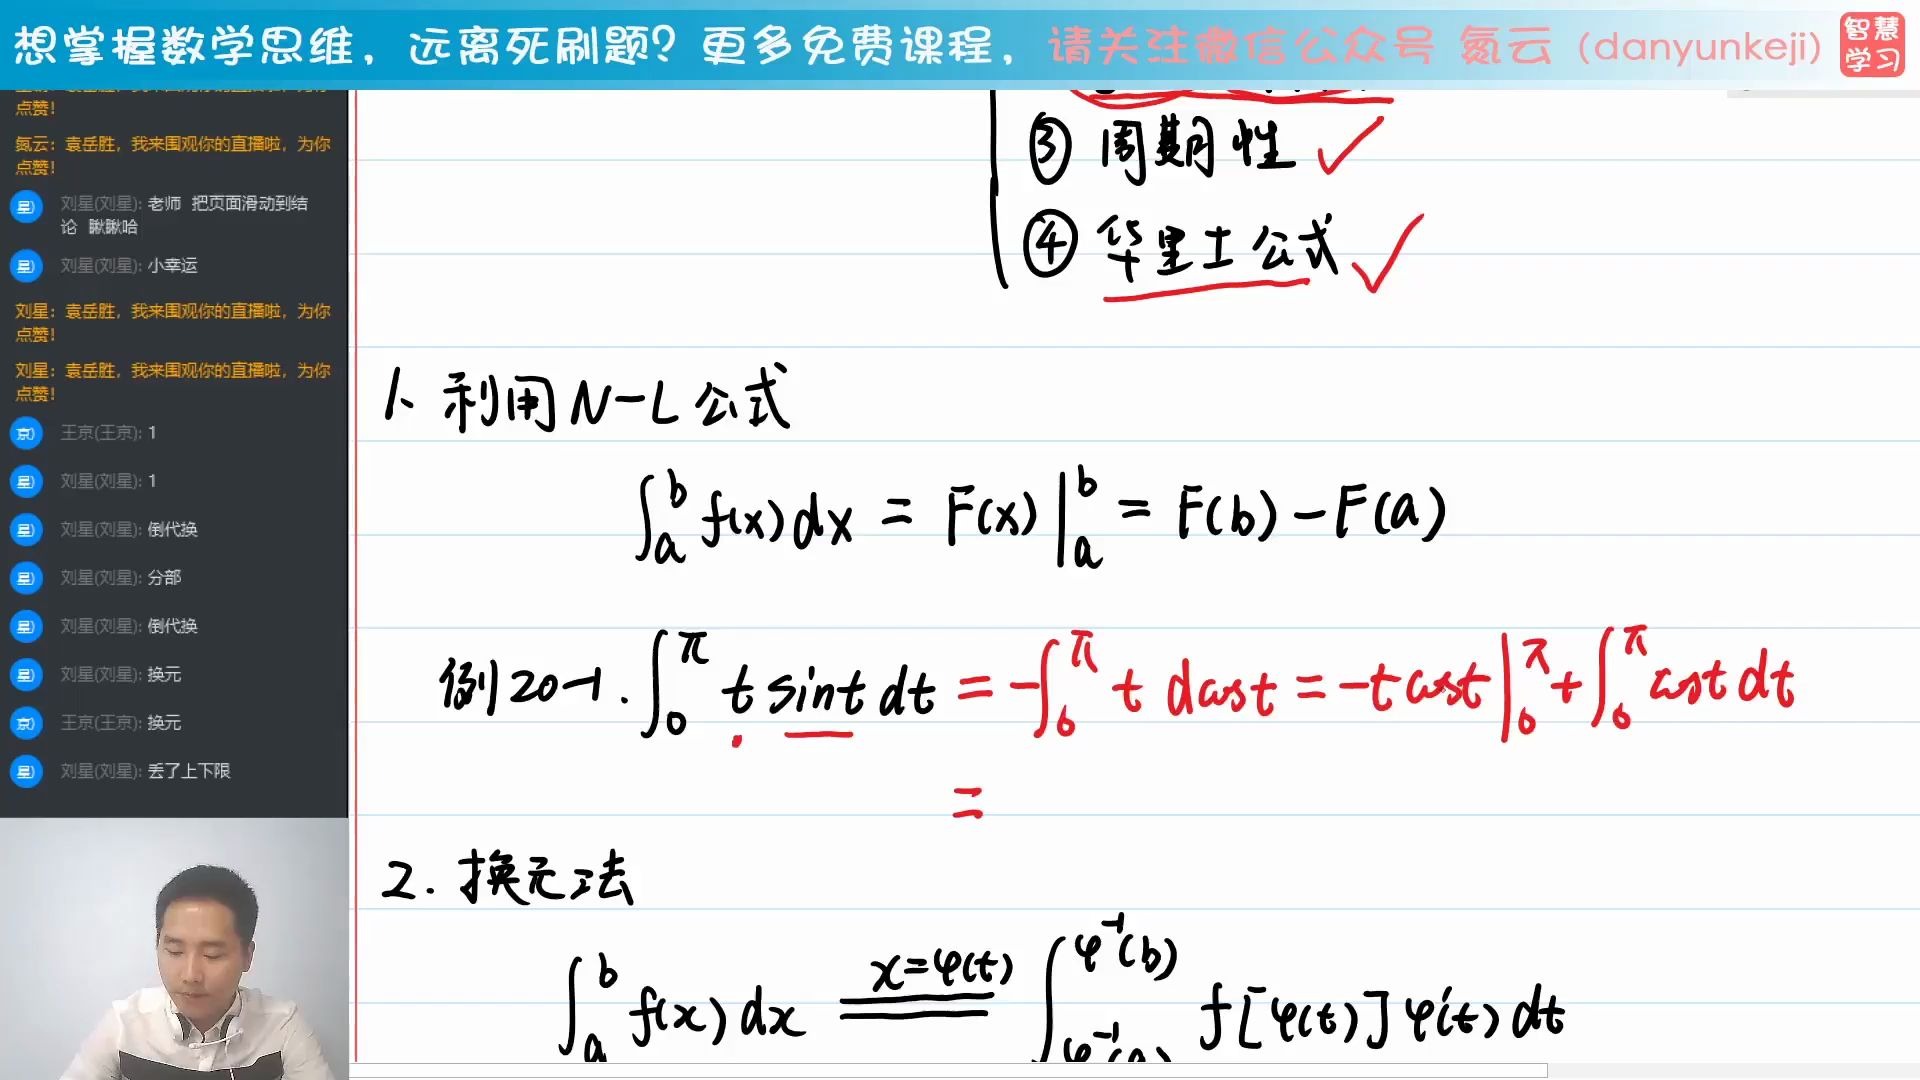 想掌握数学思维，远离死刷题？更多免费课程，请关注微信公众号 氮云（danyunkeji）
智慧
学习
点赞！
氮云：袁岳胜，我来围观你的直播啦，为你
点赞！
刘星(刘星): 老师 把页面滑动到结
论 瞅瞅哈
刘星(刘星): 小幸运
刘星：袁岳胜，我来围观你的直播啦，为你
点赞！
刘星：袁岳胜，我来围观你的直播啦，为你
点赞！
王京(王京): 1
刘星(刘星): 1
刘星(刘星): 倒代换
刘星(刘星): 分部
刘星(刘星): 倒代换
刘星(刘星): 换元
王京(王京): 换元
刘星(刘星): 丢了上下限
③ 周期性 ✓
④ 华里士公式 ✓
1. 利用N-L公式
∫_a^b f(x)dx = F(x)|_a^b = F(b)-F(a)
例20-1. ∫_0^π t sint dt = -∫_0^π t dcost = -tcost|_0^π + ∫_0^π cost dt
=
2. 换元法
∫_a^b f(x)dx x=φ(t) ∫_{φ⁻¹(a)}^{φ⁻¹(b)} f[φ(t)]φ'(t)dt